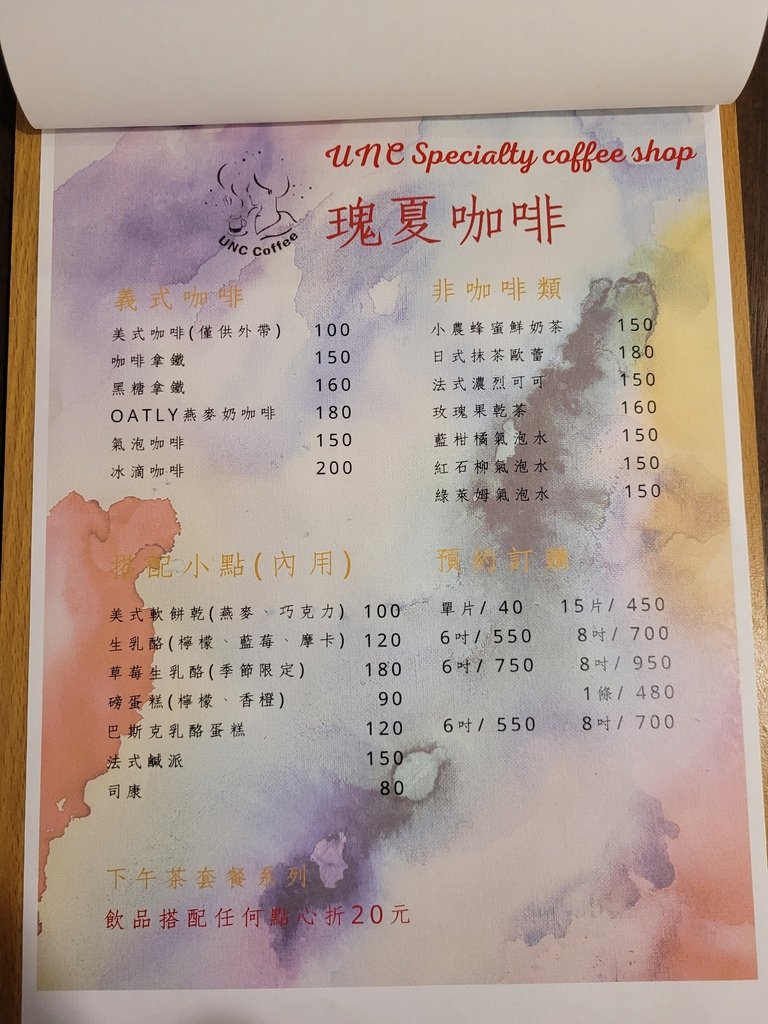 UNC Specialty coffee shop
UNC Coffee
瑰夏咖啡
義式咖啡
美式咖啡(僅供外帶) 100
咖啡拿鐵 150
黑糖拿鐵 160
OATLY燕麥奶咖啡 180
氣泡咖啡 150
冰滴咖啡 200
非咖啡類
小農蜂蜜鮮奶茶 150
日式抹茶歐蕾 180
法式濃烈可可 150
玫瑰果乾茶 160
藍柑橘氣泡水 150
紅石柳氣泡水 150
綠萊姆氣泡水 150
搭配小點(內用) 預約訂購
美式軟餅乾(燕麥、巧克力) 100 單片/ 40 15片/ 450
生乳酪(檸檬、藍莓、摩卡) 120 6吋/ 550 8吋/ 700
草莓生乳酪(季節限定) 180 6吋/ 750 8吋/ 950
磅蛋糕(檸檬、香橙) 90 1條/ 480
巴斯克乳酪蛋糕 120 6吋/ 550 8吋/ 700
法式鹹派 150
司康 80
下午茶套餐系列
飲品搭配任何點心折20元